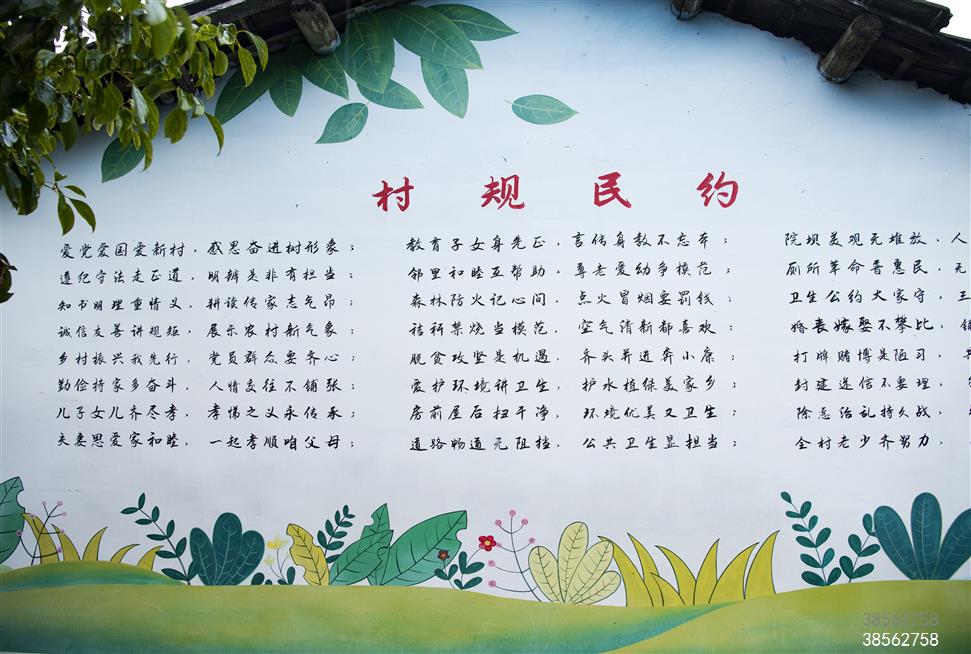 村规民约
爱党爱国爱新村，感恩奋进树形象；
遵纪守法走正道，明辨是非有担当；
知书明理重情义，耕读传家志气昂；
诚信友善讲规矩，展示农村新气象；
乡村振兴我先行，党员群众要齐心；
勤俭持家多奋斗，人情交往不铺张；
儿子女儿齐尽孝，孝悌之义永传承；
夫妻恩爱家和睦，一起孝顺咱父母；
教育子女身先正，言传身教不忘本；
邻里和睦互帮助，尊老爱幼争模范；
森林防火记心间，点火冒烟要罚钱；
秸秆禁烧当模范，空气清新都喜欢；
脱贫攻坚是机遇，齐头并进奔小康；
爱护环境讲卫生，护水植绿美家乡；
房前屋后扫干净，环境优美又卫生；
道路畅通无阻挡，公共卫生显担当；
院坝美观无堆放，人
厕所革命普惠民，无
卫生公约大家守，
婚丧嫁娶不攀比，
打牌赌博是陋习，
封建迷信不要理，
除恶治乱持久战，
全村老少齐努力，
38562758
38562758